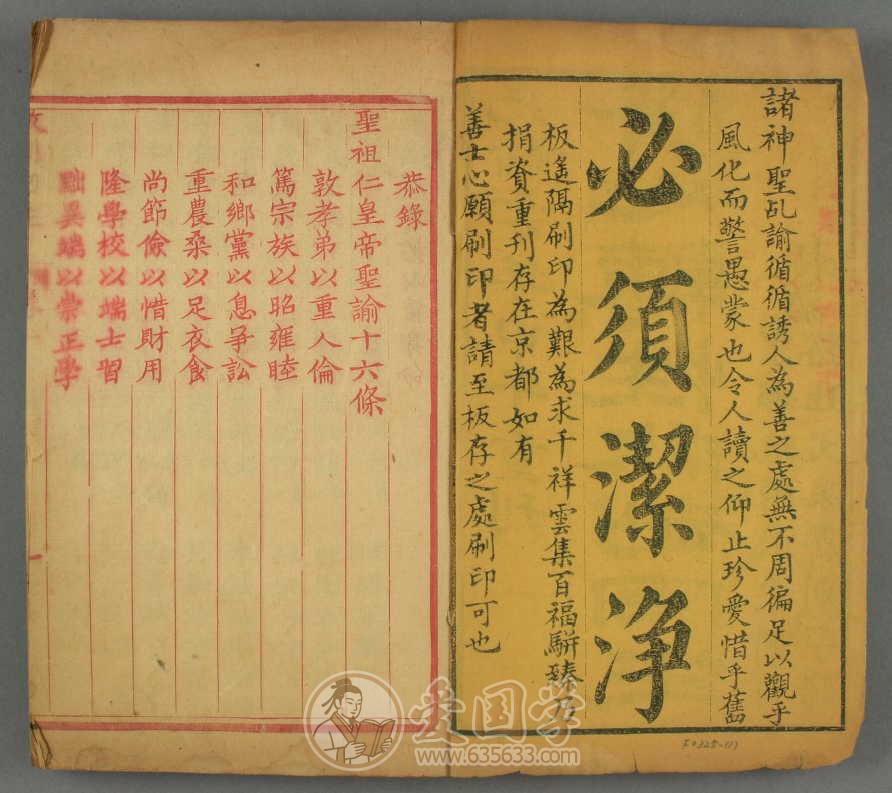 諸神聖乩諭循循誘人為善之處無不周徧足以觀乎
風化而警愚蒙也令人讀之仰止珍愛惜乎舊
必須潔净
板遙隔刷印為艱為求千祥雲集百福駢臻乃
捐資重刊存在京都如有
善士心願刷印者請至板存之處刷印可也
恭錄
聖祖仁皇帝聖諭十六條
敦孝弟以重人倫
篤宗族以昭雍睦
和鄉黨以息爭訟
重農桑以足衣食
尚節儉以惜財用
隆學校以端士習
黜異端以崇正學
爱国学
www.635633.com